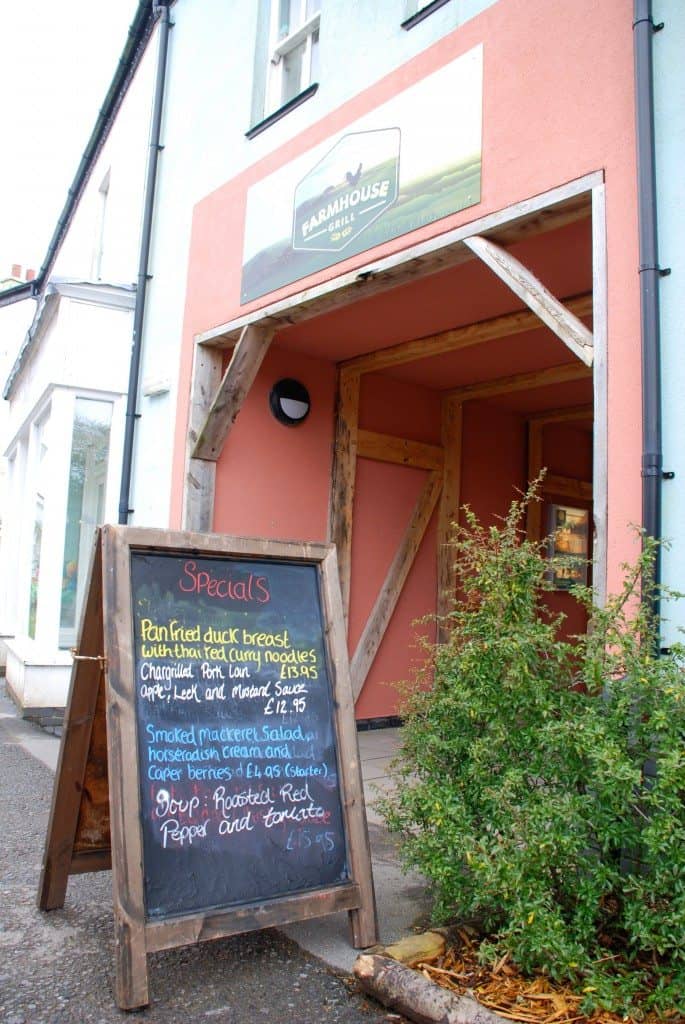 FARMHOUSE
GRILL
Specials
Pan fried duck breast
with thai red curry noodles
£13.95
Chargrilled Pork Loin
apple, Leek and Mustard Sauce
£12.95
Smoked mackerel Salad,
horseradish cream and
Caper berries £4.95 (starter)
Soup: Roasted Red
Pepper and tomato
£15.95